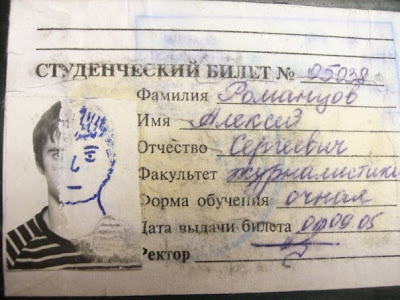 СТУДЕНЧЕСКИЙ БИЛЕТ № 05038
Фамилия Романцов
Имя Алексей
Отчество Сергеевич
Факультет журналистики
Форма обучения очная
Дата выдачи билета 01.09.05
Ректор